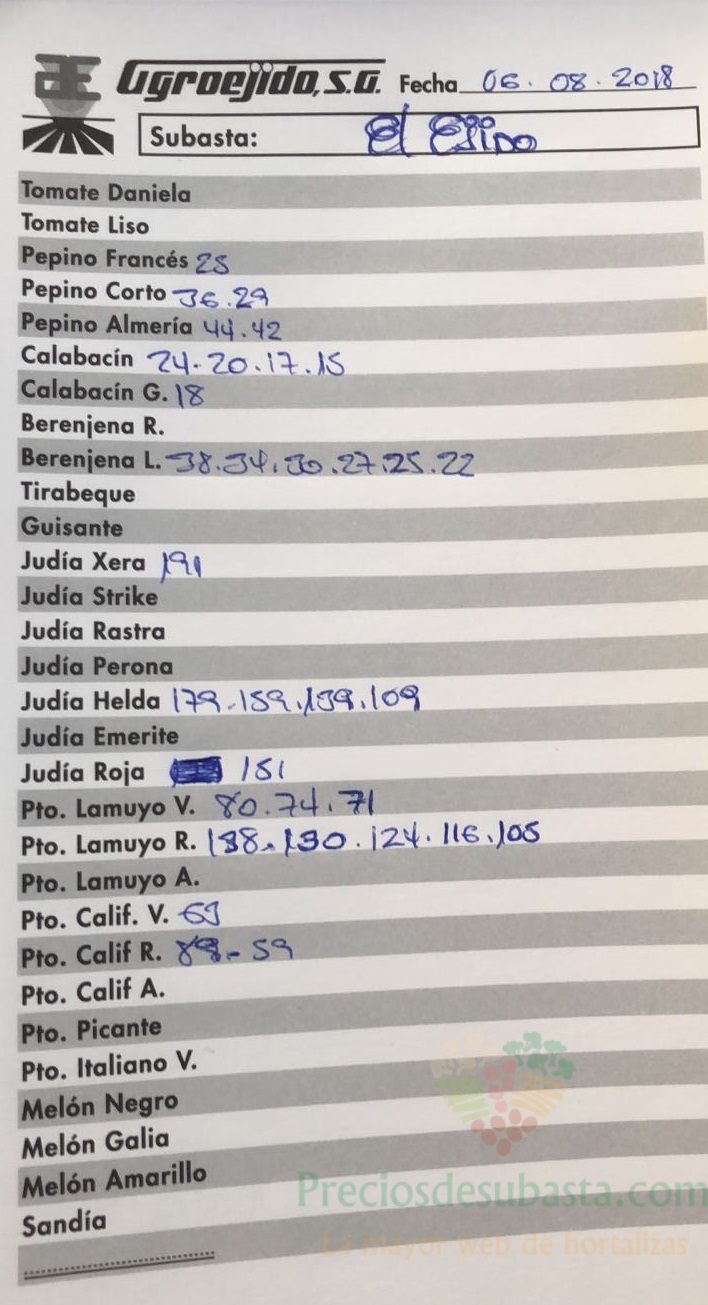 Agroejido, S.A. Fecha 06.08.2018
Subasta: El Ejido
Tomate Daniela
Tomate Liso
Pepino Francés 25
Pepino Corto 36.29
Pepino Almería 44.42
Calabacín 24.20.17.15
Calabacín G. 18
Berenjena R.
Berenjena L. 38.34.30.27.25.22
Tirabeque
Guisante
Judía Xera 191
Judía Strike
Judía Rastra
Judía Perona
Judía Helda 179.159.139.109
Judía Emerite
Judía Roja 151
Pto. Lamuyo V. 80.74.71
Pto. Lamuyo R. 138.130.124.116.105
Pto. Lamuyo A.
Pto. Calif. V. 63
Pto. Calif R. 59
Pto. Calif A.
Pto. Picante
Pto. Italiano V.
Melón Negro
Melón Galia
Melón Amarillo
Sandía
Preciosdesubasta.com
La mayor web de hortalizas